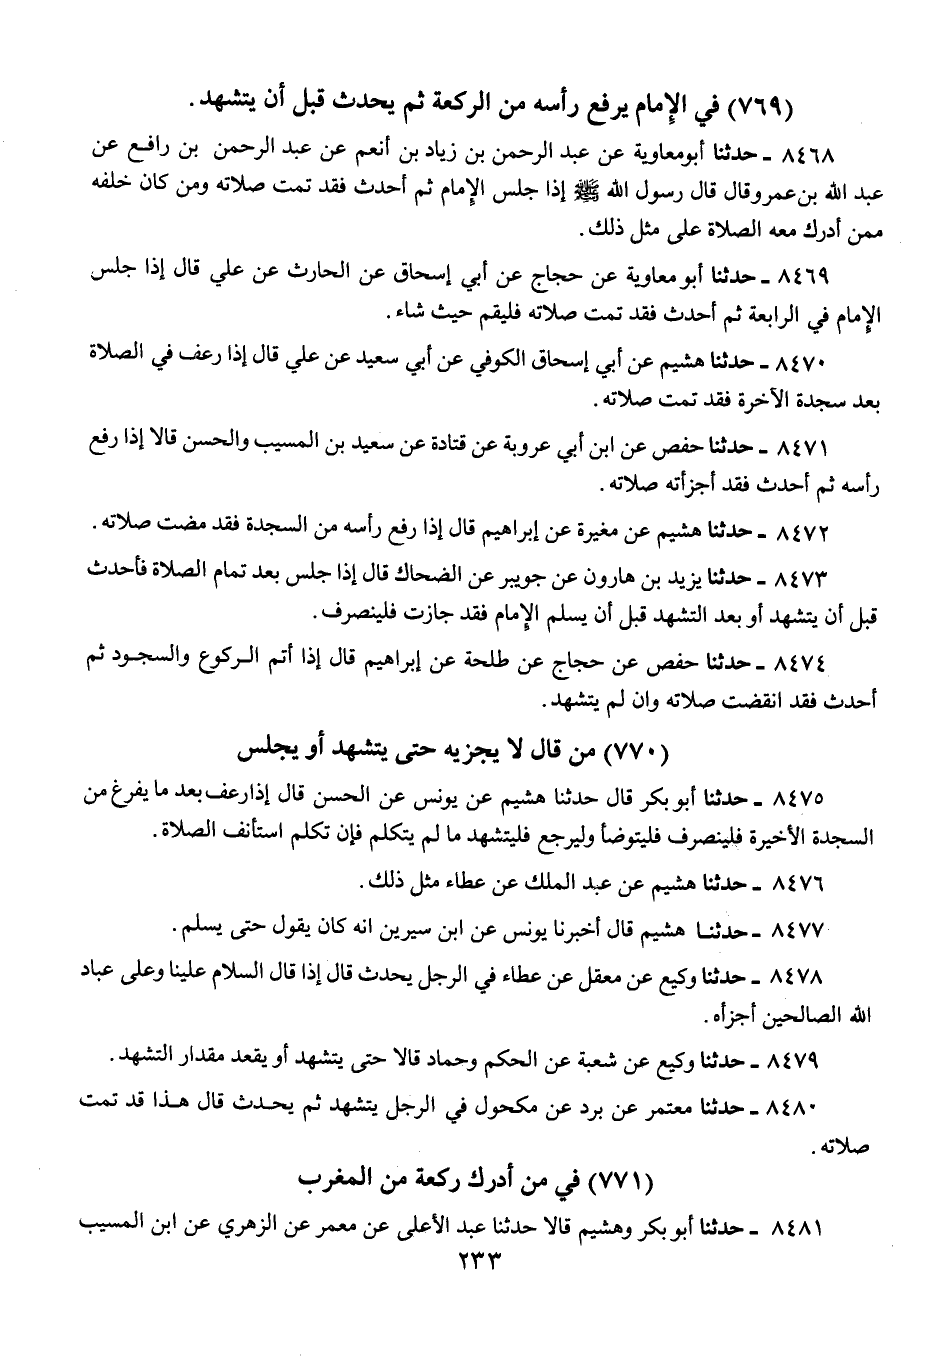 (٧٦٩) في الإمام يرفع رأسه من الركعة ثم يحدث قبل أن يتشهد.
٨٤٦٨ ـ حدثنا أبومعاوية عن عبد الرحمن بن زياد بن أنعم عن عبد الرحمن بن رافع عن
عبد الله بن عمرو قال قال رسول الله ﷺ إذا جلس الإمام ثم أحدث فقد تمت صلاته ومن كان خلفه
ممن أدرك معه الصلاة على مثل ذلك.
٨٤٦٩ ـ حدثنا أبو معاوية عن حجاج عن أبي إسحاق عن الحارث عن علي قال إذا جلس
الإمام في الرابعة ثم أحدث فقد تمت صلاته فليقم حيث شاء.
٨٤٧٠ ـ حدثنا هشيم عن أبي إسحاق الكوفي عن أبي سعيد عن علي قال إذا رعف في الصلاة
بعد سجدة الآخرة فقد تمت صلاته.
٨٤٧١ ـ حدثنا حفص عن ابن أبي عروبة عن قتادة عن سعيد بن المسيب والحسن قالا إذا رفع
رأسه ثم أحدث فقد أجزأته صلاته.
٨٤٧٢ ـ حدثنا هشيم عن مغيرة عن إبراهيم قال إذا رفع رأسه من السجدة فقد مضت صلاته.
٨٤٧٣ ـ حدثنا يزيد بن هارون عن جويبر عن الضحاك قال إذا جلس بعد تمام الصلاة فأحدث
قبل أن يتشهد أو بعد التشهد قبل أن يسلم الإمام فقد جازت فلينصرف.
٨٤٧٤ ـ حدثنا حفص عن حجاج عن طلحة عن إبراهيم قال إذا أتم الركوع والسجود ثم
أحدث فقد انقضت صلاته وان لم يتشهد.
(٧٧٠) من قال لا يجزيه حتى يتشهد أو يجلس
٨٤٧٥ ـ حدثنا أبو بكر قال حدثنا هشيم عن يونس عن الحسن قال إذا رعف بعد ما يفرغ من
السجدة الأخيرة فلينصرف فليتوضأ وليرجع فليتشهد ما لم يتكلم فإن تكلم استأنف الصلاة.
٨٤٧٦ ـ حدثنا هشيم عن عبد الملك عن عطاء مثل ذلك.
٨٤٧٧ ـ حدثنا هشيم قال أخبرنا يونس عن ابن سيرين انه كان يقول حتى يسلم.
٨٤٧٨ ـ حدثنا وكيع عن معقل عن عطاء في الرجل يحدث قال إذا قال السلام علينا وعلى عباد
الله الصالحين أجزأه.
٨٤٧٩ ـ حدثنا وكيع عن شعبة عن الحكم وحماد قالا حتى يتشهد أو يقعد مقدار التشهد.
٨٤٨٠ ـ حدثنا معتمر عن برد عن مكحول في الرجل يتشهد ثم يحدث قال هذا قد تمت
صلاته.
(٧٧١) في من أدرك ركعة من المغرب
٨٤٨١ ـ حدثنا أبو بكر وهشيم قالا حدثنا عبد الأعلى عن معمر عن الزهري عن ابن المسيب
٢٣٣